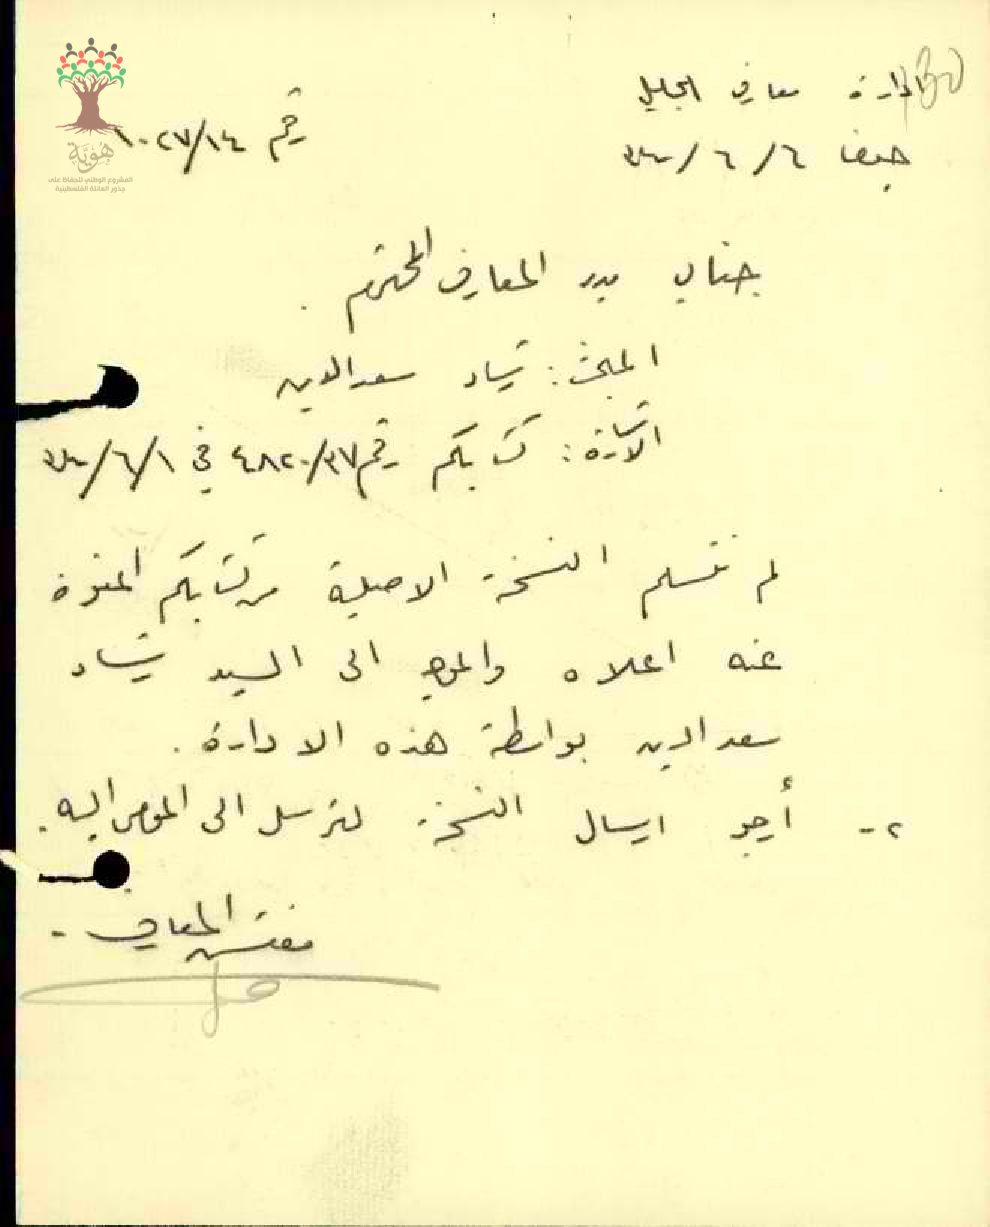 ادارة معارف الجليل
رقم ١٠٢٧/١٤
حيفا ٦/٦/
هوية
المشروع الوطني للحفاظ على
جذور العائلة الفلسطينية
جناب مدير المعارف المحترم .
المبحث : رشاد سعد الدين
الاشارة : كتابكم رقم ٤٨٢٠/٣٧ في ١/٦/
لم نتسلم النسخة الاصلية من كتابكم المنوه
عنه اعلاه والموجه الى السيد رشاد
سعد الدين بواسطة هذه الادارة .
٢ - أرجو ارسال النسخة لترسل الى المومى اليه .
مفتش المعارف -